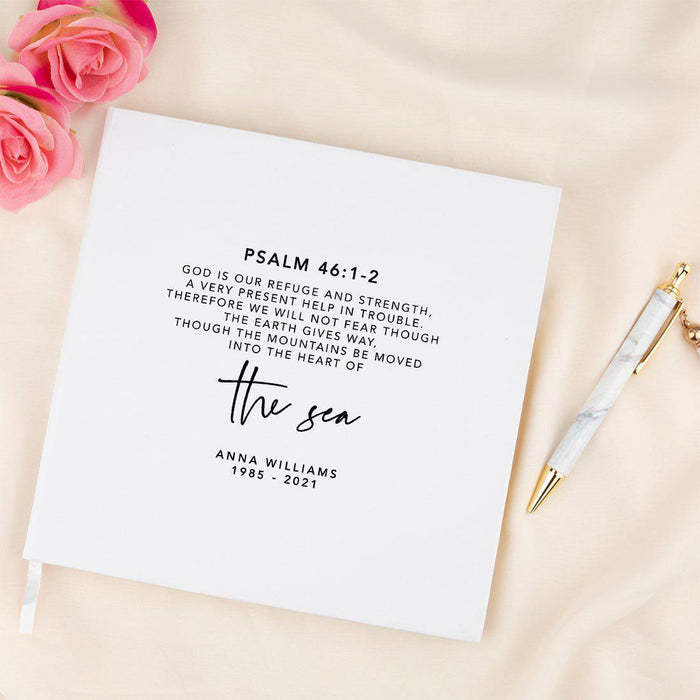 PSALM 46:1-2
GOD IS OUR REFUGE AND STRENGTH,
A VERY PRESENT HELP IN TROUBLE.
THEREFORE WE WILL NOT FEAR THOUGH
THE EARTH GIVES WAY,
THOUGH THE MOUNTAINS BE MOVED
INTO THE HEART OF
the sea
ANNA WILLIAMS
1985 - 2021